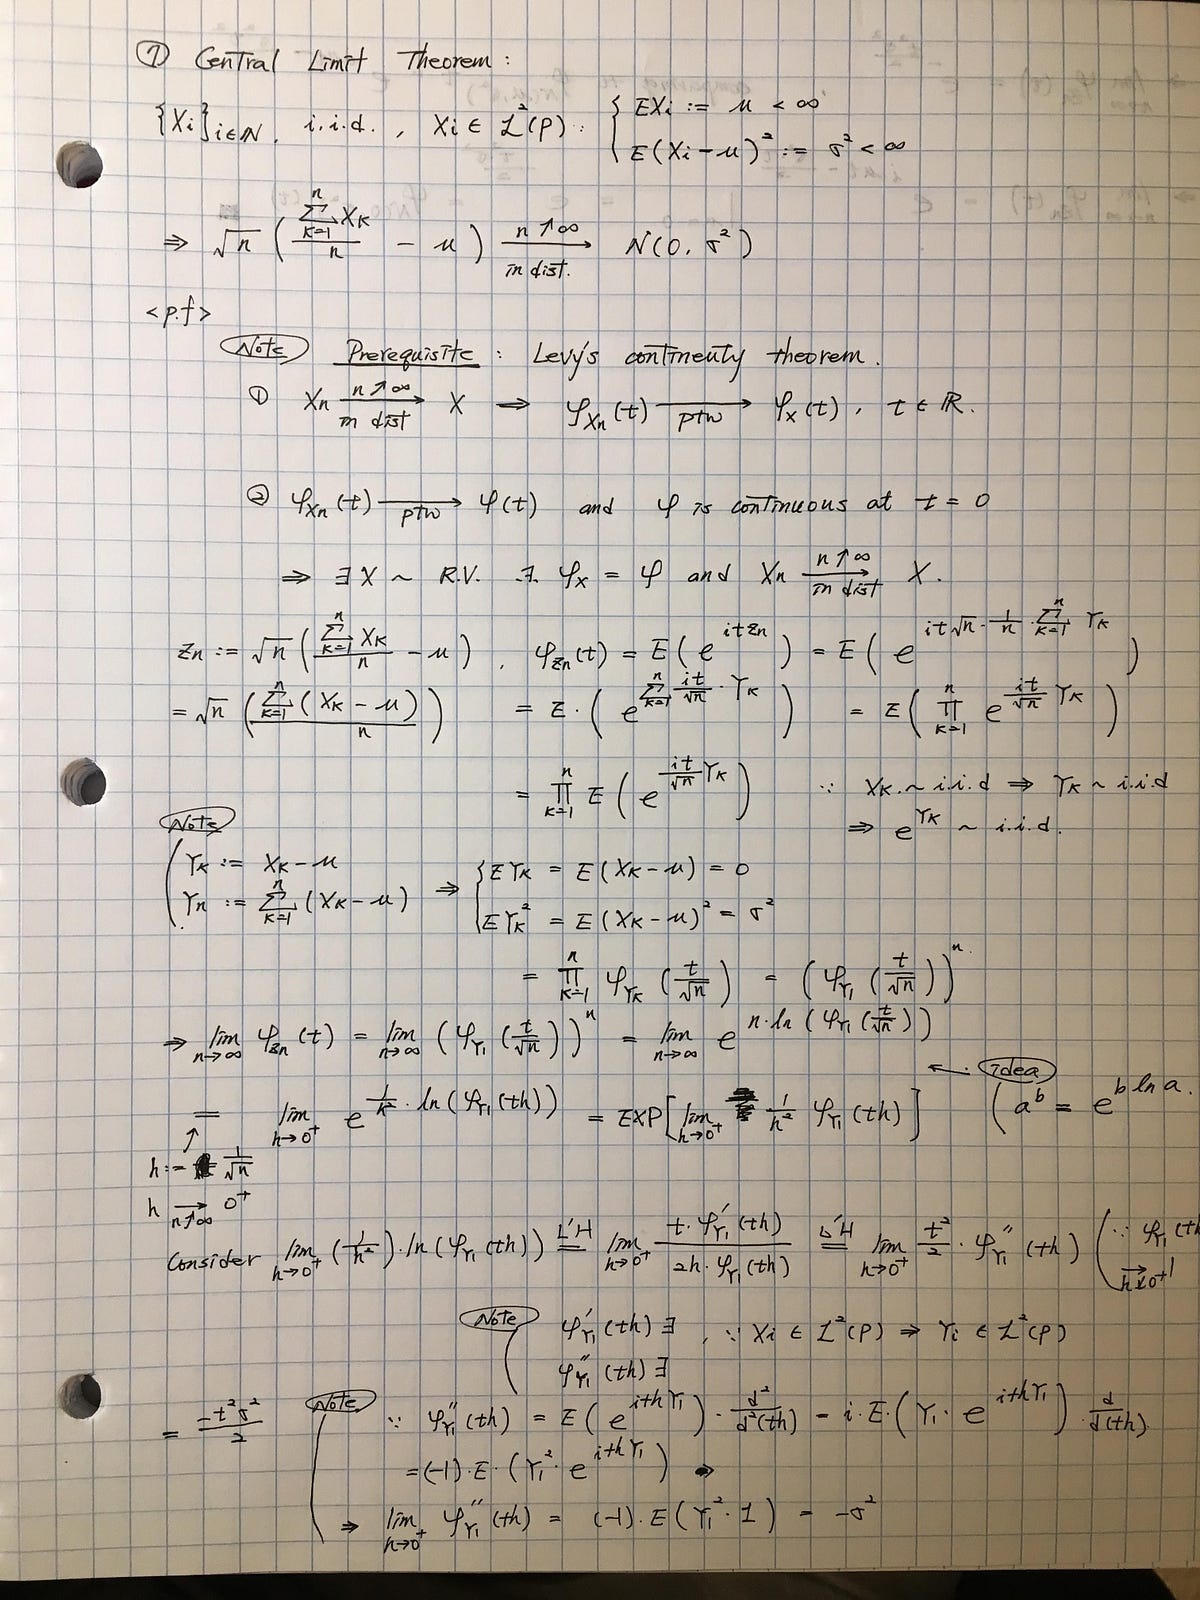 ① Central Limit Theorem :
{Xi}i∈ℕ, i.i.d., Xi ∈ L²(P) : { EXi := μ < ∞
E(Xi-μ)² := σ² < ∞
⇒ √n ( (Σ_{k=1}^{n} Xk)/n - μ ) —n↗∞ / in dist.→ N(0, σ²)
<p.f>
Note Prerequisite : Levy's continuity theorem.
① Xn —n↗∞ / in dist→ X ⇒ φ_{Xn}(t) —ptw→ φ_X(t), t ∈ ℝ.
② φ_{Xn}(t) —ptw→ φ(t) and φ is continuous at t = 0
⇒ ∃X ~ R.V. ∋. φ_X = φ and Xn —n↗∞ / in dist→ X.
Zn := √n ( (Σ_{k=1}^{n} Xk)/n - μ ), φ_{Zn}(t) = E( e^{itZn} ) = E( e^{it√n · 1/n · Σ_{k=1}^{n} Yk} )
= √n ( (Σ_{k=1}^{n} (Xk - μ))/n ) = E·( e^{Σ_{k=1}^{n} it/√n · Yk} ) = E( Π_{k=1}^{n} e^{it/√n Yk} )
= Π_{k=1}^{n} E( e^{it/√n Yk} ) ∵ Xk ~ i.i.d ⇒ Yk ~ i.i.d
⇒ e^{Yk} ~ i.i.d.
Note
( Yk := Xk - μ
Yn := Σ_{k=1}^{n} (Xk - μ) ⇒ { EYk = E(Xk - μ) = 0
EYk² = E(Xk - μ)² = σ²
= Π_{k=1}^{n} φ_{Yk}(t/√n) = (φ_{Y1}(t/√n))^n.
⇒ lim_{n→∞} φ_{Zn}(t) = lim_{n→∞} (φ_{Y1}(t/√n))^n = lim_{n→∞} e^{n·ln(φ_{Y1}(t/√n))}
← idea
= lim_{h→0⁺} e^{1/h² · ln(φ_{Y1}(th))} = EXP[ lim_{h→0⁺} 1/h² φ_{Y1}(th) ] ( a^b = e^{b ln a}.
h := 1/√n
h —n↗∞→ 0⁺
Consider lim_{h→0⁺} (1/h²)·ln(φ_{Y1}(th)) =L'H= lim_{h→0⁺} (t·φ'_{Y1}(th))/(2h·φ_{Y1}(th)) =L'H= lim_{h→0⁺} t²/2 · φ''_{Y1}(th) ( ∵ φ_{Y1}(th
→ h↘0⁺ 1
Note ( φ'_{Y1}(th) ∃, ∵ Xi ∈ L²(P) ⇒ Yi ∈ L²(P)
φ''_{Y1}(th) ∃
= -t²σ²/2 Note ( ∵ φ''_{Y1}(th) = E( e^{ithY1} )·d²/d²(th) = i·E·( Y1·e^{ithY1} )·d/d(th)
= (-1)·E·( Y1²·e^{ithY1} )
⇒ lim_{h→0⁺} φ''_{Y1}(th) = (-1)·E( Y1²·1 ) = -σ²